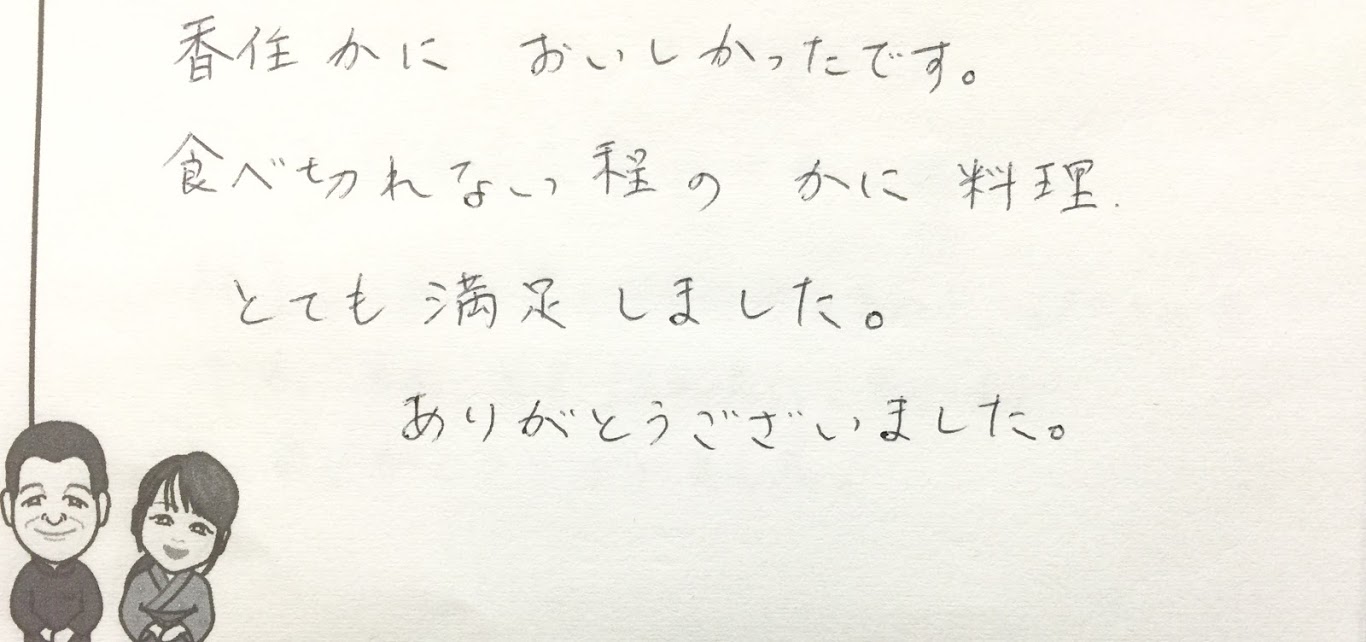 香住かに おいしかったです。
食べ切れない程の かに 料理.
とても 満足 しました。
ありがとうございました。